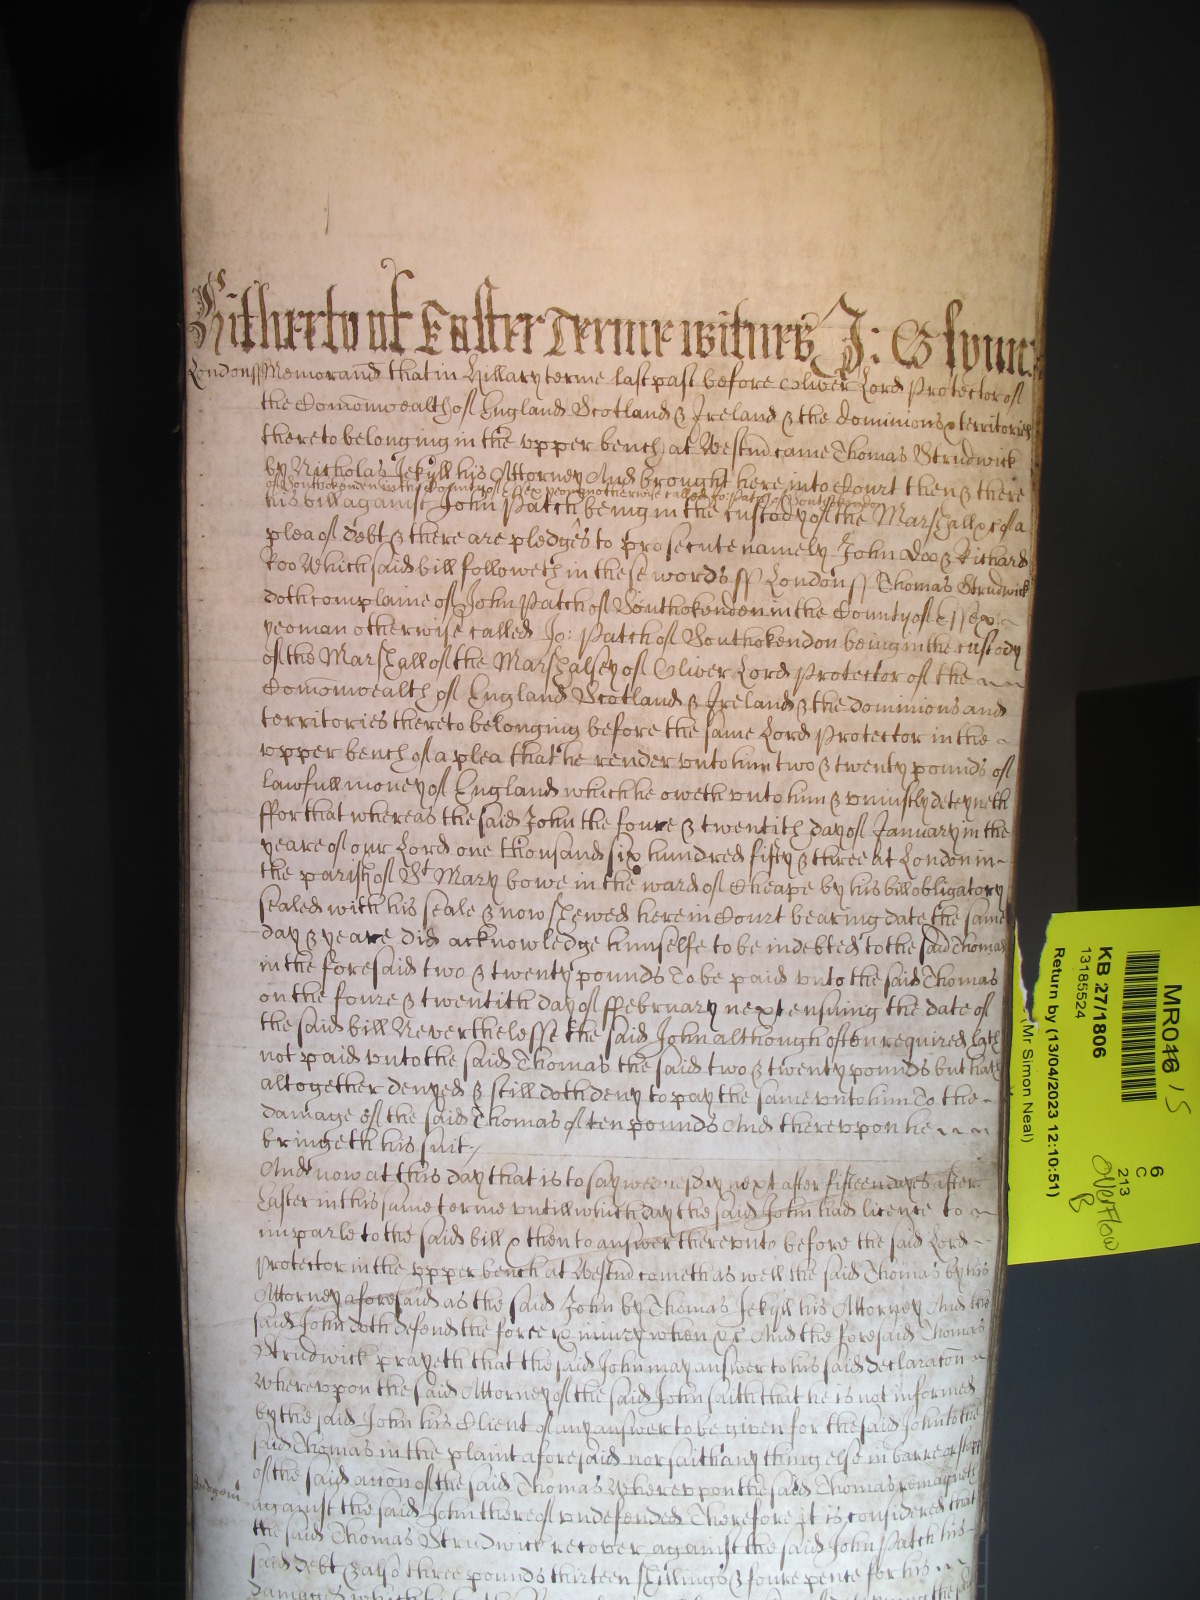 Hitherto of Easter Terme witnes J: Glynn:
London ss Memorand that in Hillary terme last past before Oliver Lord Protector of
the Comonwealth of England Scotland & Ireland & the dominions & territories
thereto belonging in the vpper bench at Westmr came Thomas Strudwick
by Nicholas Jekyll his Attorney And brought here into Court then & there
of Southokenden in the County of Essex yeoman otherwise called Jo: Patch of Southokendon
his bill against John Patch being in the custody of the Marshall &c of a
plea of debt & there are pledges to prosecute namely John Doo & Richard
Roo Which said bill followeth in these words ss London ss Thomas Strudwick
doth complaine of John Patch of Southokenden in the County of Essex
yeoman otherwise called Jo: Patch of Southokendon being in the custody
of the Marshall of the Marshalsey of Oliver Lord Protector of the
Comonwealth of England Scotland & Ireland & the dominions and
territories thereto belonging before the same Lord Protector in the
vpper bench of a plea that he render vnto him two & twenty pounds of
lawfull money of England which he oweth vnto him & vniustly deteyneth
ffor that whereas the said John the foure & twentith day of January in the
yeare of our Lord one thousand six hundred fifty & three at London in
the parish of St Mary bowe in the ward of Cheape by his bill obligatory
sealed with his seale & now shewed here in Court bearing date the same
day & yeare did acknowledge himselfe to be indebted to the said Thomas
in the foresaid two & twenty pounds To be paid vnto the said Thomas
on the foure & twentith day of ffebruary next ensuing the date of
the said bill Neverthelesse the said John although often required hath
not paid vnto the said Thomas the said two & twenty pounds but hath
altogether denyed & still doth deny to pay the same vnto him To the
damage of the said Thomas of ten pounds And therevpon he
bringeth his suit
And now at this day that is to say wednesday next after fifteen dayes after
Easter in this same terme vntill which day the said John had licence to
imparle to the said bill & then to answer therevnto before the said Lord
Protector in the vpper bench at Westmr cometh as well the said Thomas by his
Attorney aforesaid as the said John by Thomas Jekyll his Attorney And the
said John doth defend the force & iniury when &c And the foresaid Thomas
Strudwick prayeth that the said John may answer to his said declaracon
Wherevpon the said Attorney of the said John saith that he is not informed
by the said John his Client of any answer to be given for the said John to the
said Thomas in the plaint aforesaid nor saith any thing else in barre or stay
of the said accon of the said Thomas Wherevpon the said Thomas remayneth
Judgemt
against the said John thereof vndefended Therefore it is considered that
the said Thomas Strudwick recover against the said John Patch his
said debt & also three pounds thirteen shillings & foure pence for his
damages which
MR046 / 5
KB 27/1806
13185524
Return by (13/04/2023 12:10:51)
(Mr Simon Neal)
6
C
213
Overflow
B